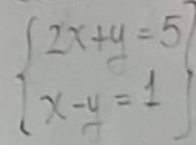 2x+y=5
x-y=1